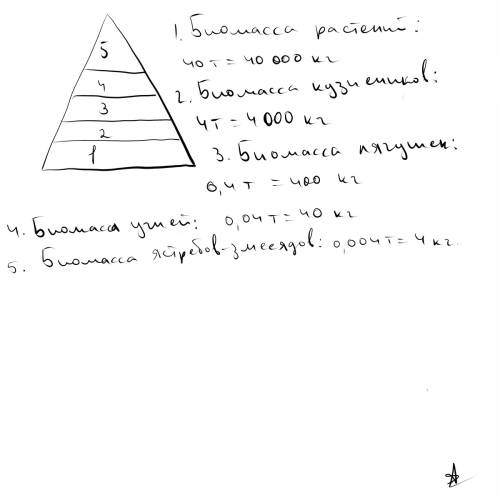 5
4
3
2
1
1. Биомасса растений:
40 т = 40 000 кг
2. Биомасса кузнечиков:
4т = 4000 кг
3. Биомасса лягушек:
0,4 т = 400 кг
4. Биомасса ужей: 0,04 т = 40 кг
5. Биомасса ястребов-змееядов: 0,004т = 4 кг.